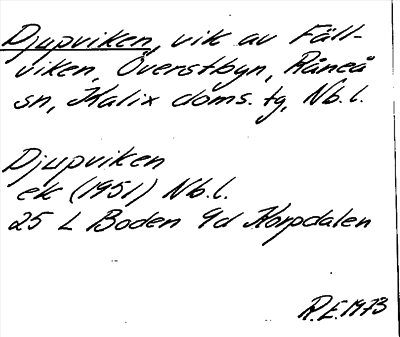 Djupviken, vik av Fäll-
viken, Överstbyn, Råneå
sn, Kalix doms. tg, Nb. l.
Djupviken
ek (1951) Nb. l.
25 L Boden 9d Korpdalen
R.E. 1973